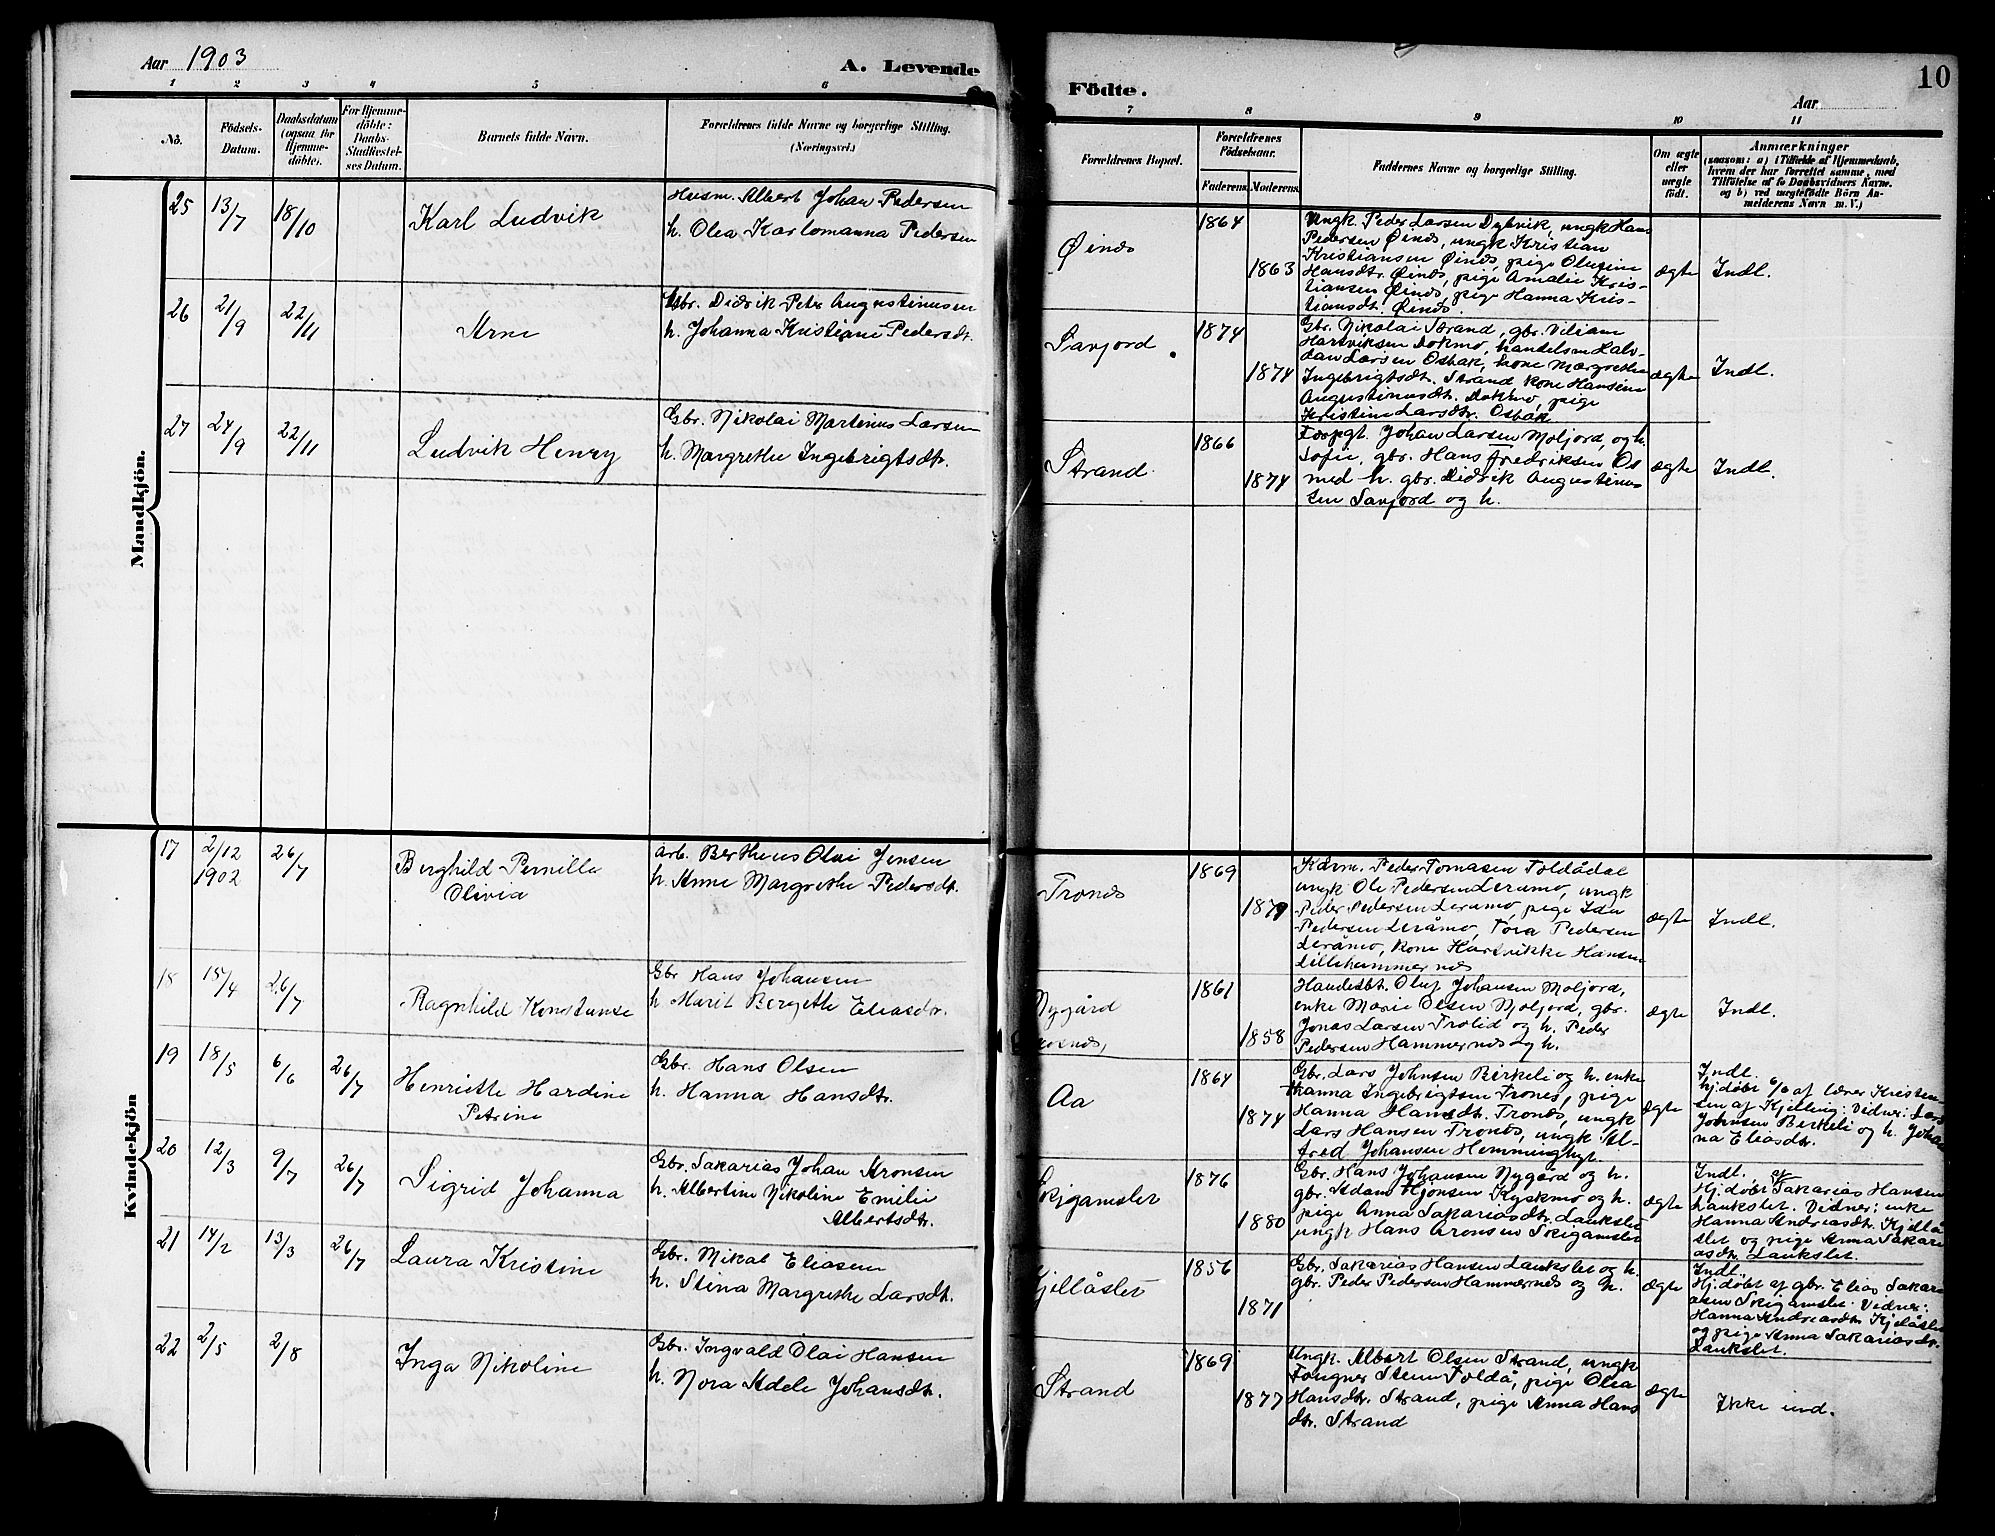 Aar 1903
A. Levende
Födte.
Aar
10
1 2 3 4 5 6 7 8 9 10 11
No.
Födsels-
Datum.
Daabsdatum
(ogsaa for
Hjemme-
döbte).
For Hjemme-
döbte:
Daabs-
Stadfæstel-
ses Datum.
Barnets fulde Navn.
Forældrenes fulde Navne og borgerlige Stilling.
(Næringsvei.)
Forældrenes Bopæl.
Forældrenes
Födselsaar.
Faderens.
Moderens.
Faddernes Navne og borgerlige Stilling.
Om ægte
eller
uægte
født.
Anmærkninger
(saasom: a) i Tilfælde af Hjemmedaab,
hvem der har forrettet samme, med
Tilføielse af to Daabsvidners Navne.
og b) ved uægtefødte Börn An-
melderens Navn m. V.)
Mandkjön.
25
13/7
18/10
Karl Ludvik
Husm. Albert Johan Pedersen
h. Olea Karlomanna Pedersen
Øinæs
1864
1863
Ungk. Peder Larsen Dybvik, ungk Hans
Pedersen Øines, ungk Kristian
Kristiansen Øines, pige Olufine
Hansdtr. Øines, pige Amalie Kris-
tiansen Øines, pige Hanna Kris-
tiansdt. Øines.
ægte
Indl.
26
21/9
22/11
Arne
Gbr. Didrik Peter Augustinussen
h. Johanna Kristiane Pedersdt.
Savjord
1874
1874
Gbr. Nikolai Strand, gbr. Viliam
Hartviksen Dokmo, handelsm Halv-
dan Larsen Osbak, kone Margrethe
Ingebrigtsdtr. Strand, kone Hansine
Augustinusdt. Dokmo, pige
Kristine Larsdtr. Osbak
ægte
Indl.
27
24/9
22/11
Ludvik Henry
Gbr. Nikolai Martinus Larsen
h. Margrethe Ingebrigtsdtr.
Strand.
1866
1874
Forpgt. Johan Larsen Moljord, og h.
Sofie, gbr. Hans Fredriksen Os
med h. gbr. Didrik Augustinus-
sen Savjord og h.
ægte
Indl.
Kvindekjön
17
2/12
1902
26/7
Berghild Pernille
Olivia
Arb. Bertheus Olai Jensen
h. Anne Margrethe Pedersdt.
Tronæs
1869
1879
Kårm. Peder Tomasen Toldådal
ungk Ole Pedersen Leramo, ungk
Peder Pedersen Leramo, pige Ida
Pedersen Leråmo, Tora Pedersen
Leråmo, kone Hartvikke Hansen
Lillehammernæs
ægte
Indl.
18
15/4
26/7
Ragnhild Konstanse
Gbr Hans Johansen
h. Marit Bergethe Eliasdtr.
Nygård
1861
1858
Handelsbt. Oluf Johansen Moljord,
enke Marie Olsen Moljord, gbr.
Jonas Larsen Trolid og h. Peder
Pedersen Hammernæs og h.
ægte
Indl.
19
18/5
6/6
26/7
Henriette Hardine
Petrine
Gbr. Hans Olsen
h. Hanna Hansdtr.
Aa
1864
1874
Gbr. Lars Johnsen Birkeli og h. enke
Hanna Ingebrigtsen Trones, pige
Hanna Hansdtr. Trones, ungk
Lars Hansen Trones, ungk Al-
fred Johansen Hemminghyt.
ægte
Indl.
hj.døbt 6/6 af lærer Kristen-
sen af Kjelling: Vidner: Lars
Johnsen Birkeli og h. Johan-
na Eliasdtr.
20
12/3
9/7
26/7
Sigrid Johanna
Gbr. Sakarias Johan Aronsen
h. Albertine Nikoline Emilie
Albertsdtr.
Skigamslet
1876
1880
Gbr. Hans Johansen Nygård og h.
gbr. Adam Hjonsen Kyskmo og h.
pige Anna Sakariasdtr. Laukslet
ungk Hans Aronsen Skigamslet
ægte
Indl. af
Hj.døbt Sakarias Hansen
Laukslet. Vidner: enke
Hanna Andreasdtr. Kjellå-
slet og pige Anna Sakari-
asdtr. Laukslet.
21
14/2
13/3
26/7
Laura Kristine
Gbr. Mikal Eliasen
h. Stina Margrethe Larsdt.
Kjellåslet
1856
1871
Gbr. Sakarias Hansen Laukslet og h.
gbr. Peder Pedersen Hammernæs og h.
ægte
Indl.
Hj.døbt af gbr. Elias Sakari-
asen Skigamslet. Vidner:
Hanna Andreasdtr. Kjelåslet
og pige Anna Sakariasdtr.
Laukslet.
22
2/5
2/8
Inga Nikoline
Gbr. Ingvald Olai Hansen
h. Nora Adele Johansdt.
Strand
1869
1877
Ungk. Albert Olsen Strand, ungk
Torgner Steen Toldå, pige Olea
Hansdtr. Strand, pige Anna Hans
dtr. Strand
ægte
Ikke ind.